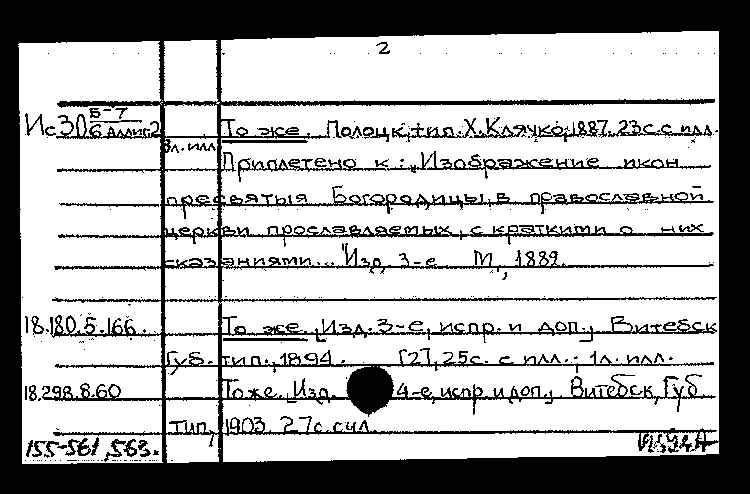 2
Ис30 Б-7/6 Аллиг.2 То же. Полоцк, тип. Х. Клячко, 1887. 23с. с илл.
3л. илл. Приплетено к: „Изображение икон
пресвятыя Богородицы, в православной
церкви прославляемых, с краткими о них
сказаниями..." Изд. 3-е М., 1889.
18.180.5.166. То же. [Изд. 3-е, испр. и доп.] Витебск
Губ. тип., 1894. [2], 25с. с илл.; 1л. илл.
18.298.8.60 То же. [Изд. 4-е, испр. и доп.] Витебск, Губ
тип., 1903. 27с. с ил.
155-561, 563.